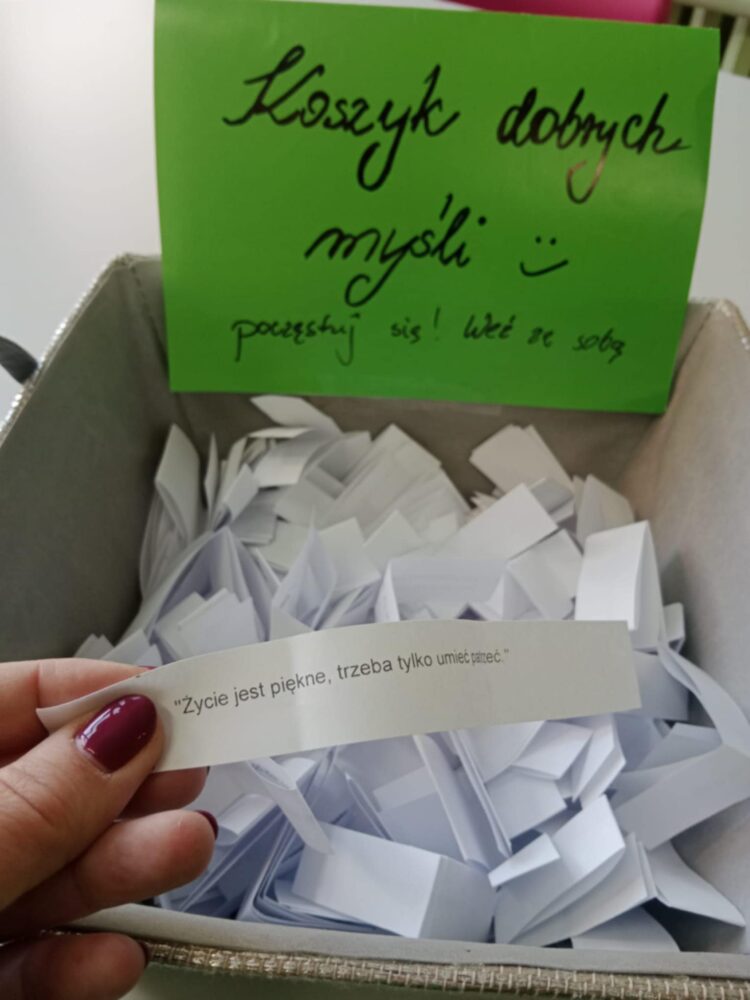 Koszyk dobrych
myśli :)
poczęstuj się! Weź ze sobą
"Życie jest piękne, trzeba tylko umieć patrzeć."